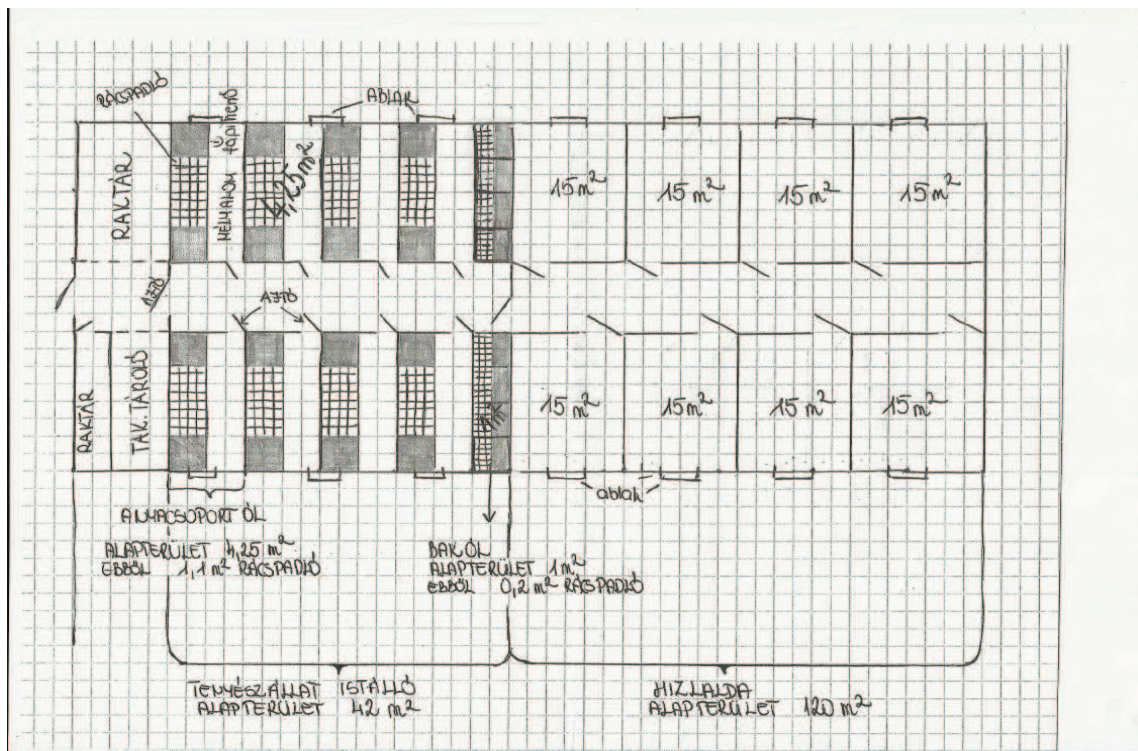 RÁCSPADLÓ
ABLAK
RAKTÁR
MÉLYALOM
4,25 m²
15 m²
15 m²
15 m²
15 m²
AJTÓ
AJTÓ
RAKTÁR
TAK. TÁROLÓ
15 m²
15 m²
15 m²
15 m²
ablak
ANYACSOPORT ÓL
ALAPTERÜLET 4,25 m²
EBBŐL 1,1 m² RÁCSPADLÓ
BAKÓL
ALAPTERÜLET 1m²
EBBŐL 0,2 m² RÁCSPADLÓ
TENYÉSZÁLLAT ISTÁLLÓ
ALAPTERÜLET 42 m²
HIZLALDA
ALAPTERÜLET 120 m²